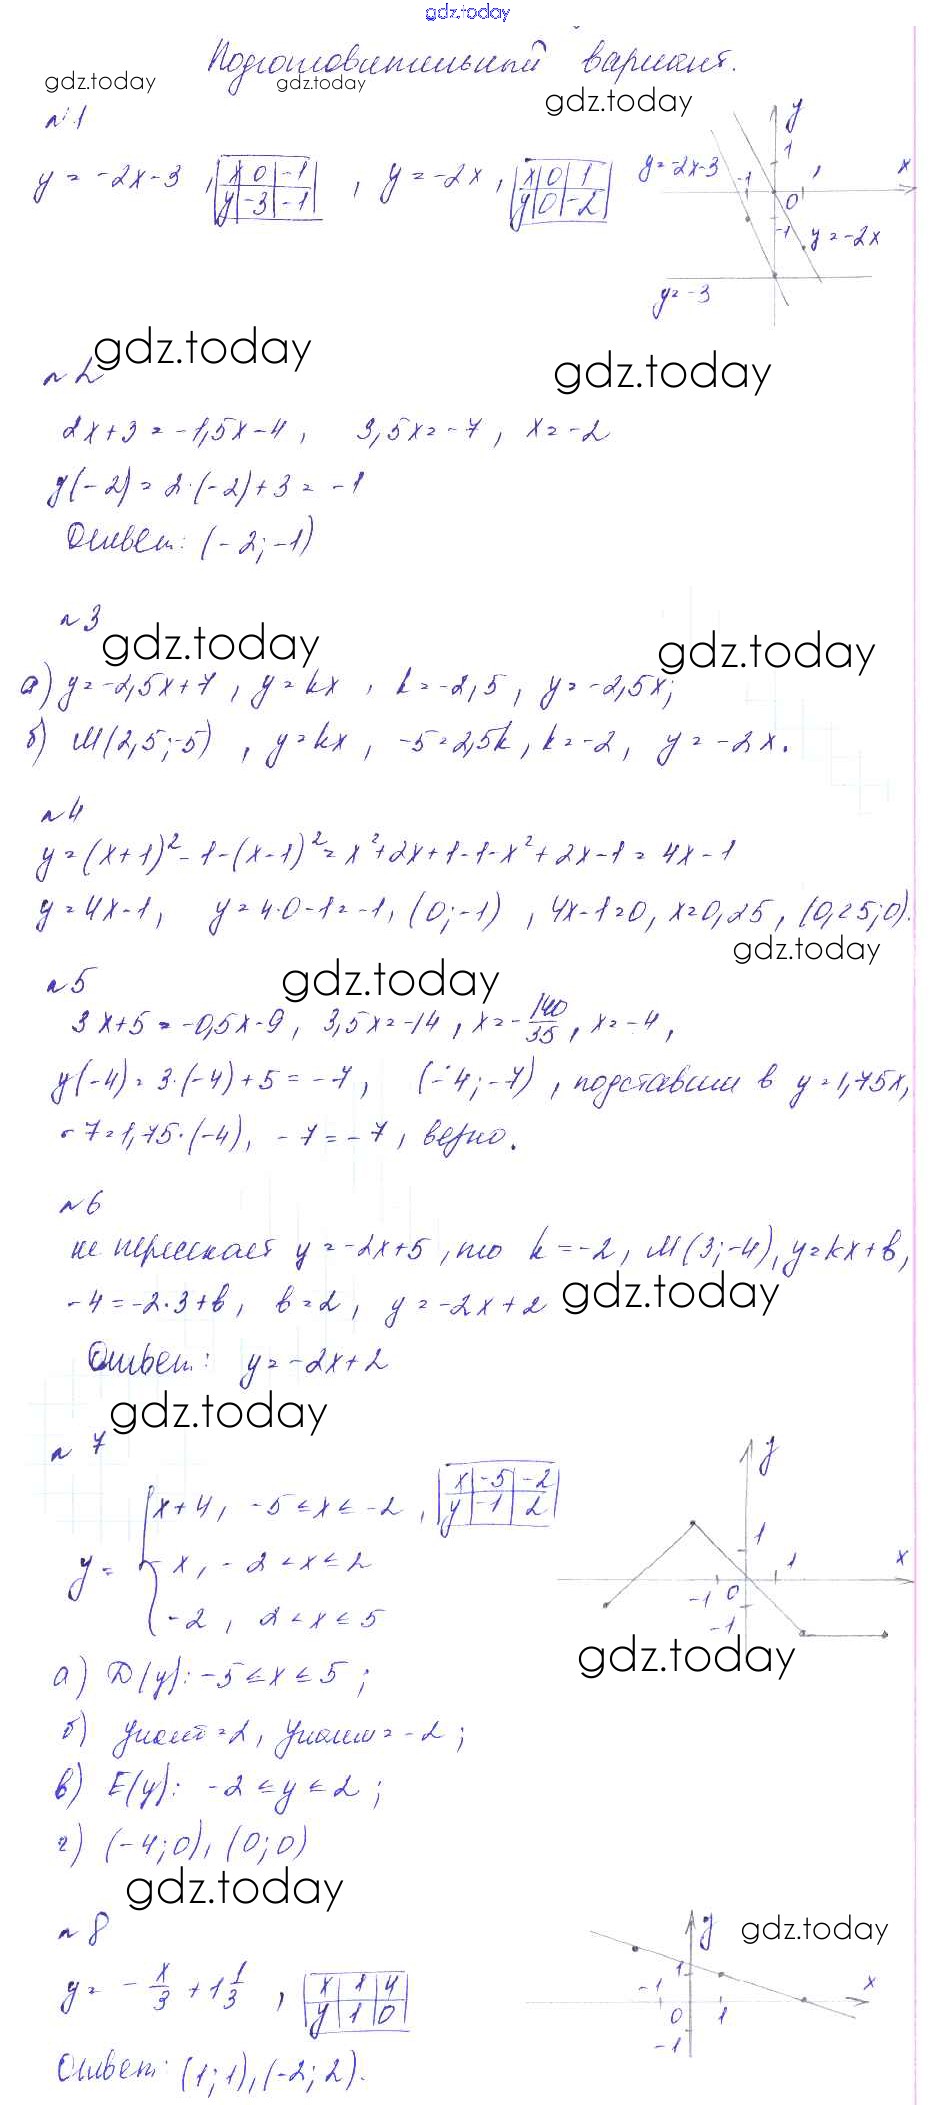 gdz.today
Подготовительный вариант.
gdz.today gdz.today gdz.today
№1
y = -2x-3, x 0 -1, y = -2x, x 0 1
y -3 -1 y 0 -2
y=-2x-3 y x
1 -1 0 -1
y=-2x
y=-3
gdz.today gdz.today
№2
2x+3=-1,5x-4, 3,5x=-7, x=-2
y(-2)=2·(-2)+3=-1
Ответ: (-2;-1)
№3
gdz.today gdz.today
а) y=-2,5x+7, y=kx, k=-2,5, y=-2,5x;
б) M(2,5;-5), y=kx, -5=2,5k, k=-2, y=-2x.
№4
y=(x+1)²-1-(x-1)²=x²+2x+1-1-x²+2x-1=4x-1
y=4x-1, y=4·0-1=-1, (0;-1), 4x-1=0, x=0,25, (0,25;0).
gdz.today
№5 gdz.today
3x+5=-0,5x-9, 3,5x=-14, x=-140/35, x=-4,
y(-4)=3·(-4)+5=-7, (-4;-7), подставим в y=1,75x,
-7=1,75·(-4), -7=-7, верно.
№6
не пересекает y=-2x+5, то k=-2, M(3;-4), y=kx+b,
-4=-2·3+b, b=2, y=-2x+2 gdz.today
Ответ: y=-2x+2
gdz.today
№7
x+4, -5≤x≤-2, x -5 -2
y -1 2
y= -x, -2<x≤2
-2, 2<x≤5
y x
1 1 -1 0 -1
gdz.today
а) D(y): -5≤x≤5;
б) yнаиб=2, yнаим=-2;
в) E(y): -2≤y≤2;
г) (-4;0), (0;0)
gdz.today
№8 gdz.today
y=-x/3+1 1/3, x 1 4
y 1 0
y x
1 -1 0 1 -1
Ответ: (1;1), (-2;2).